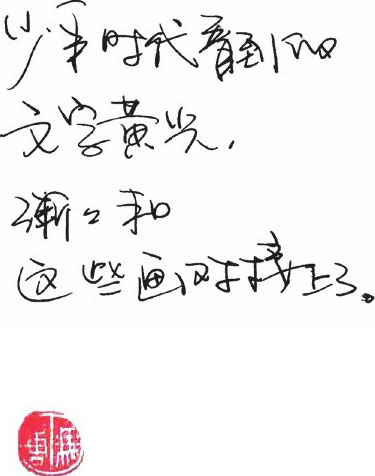 少年时代看到的
文字黄光，
渐々和
这些画对接上了。